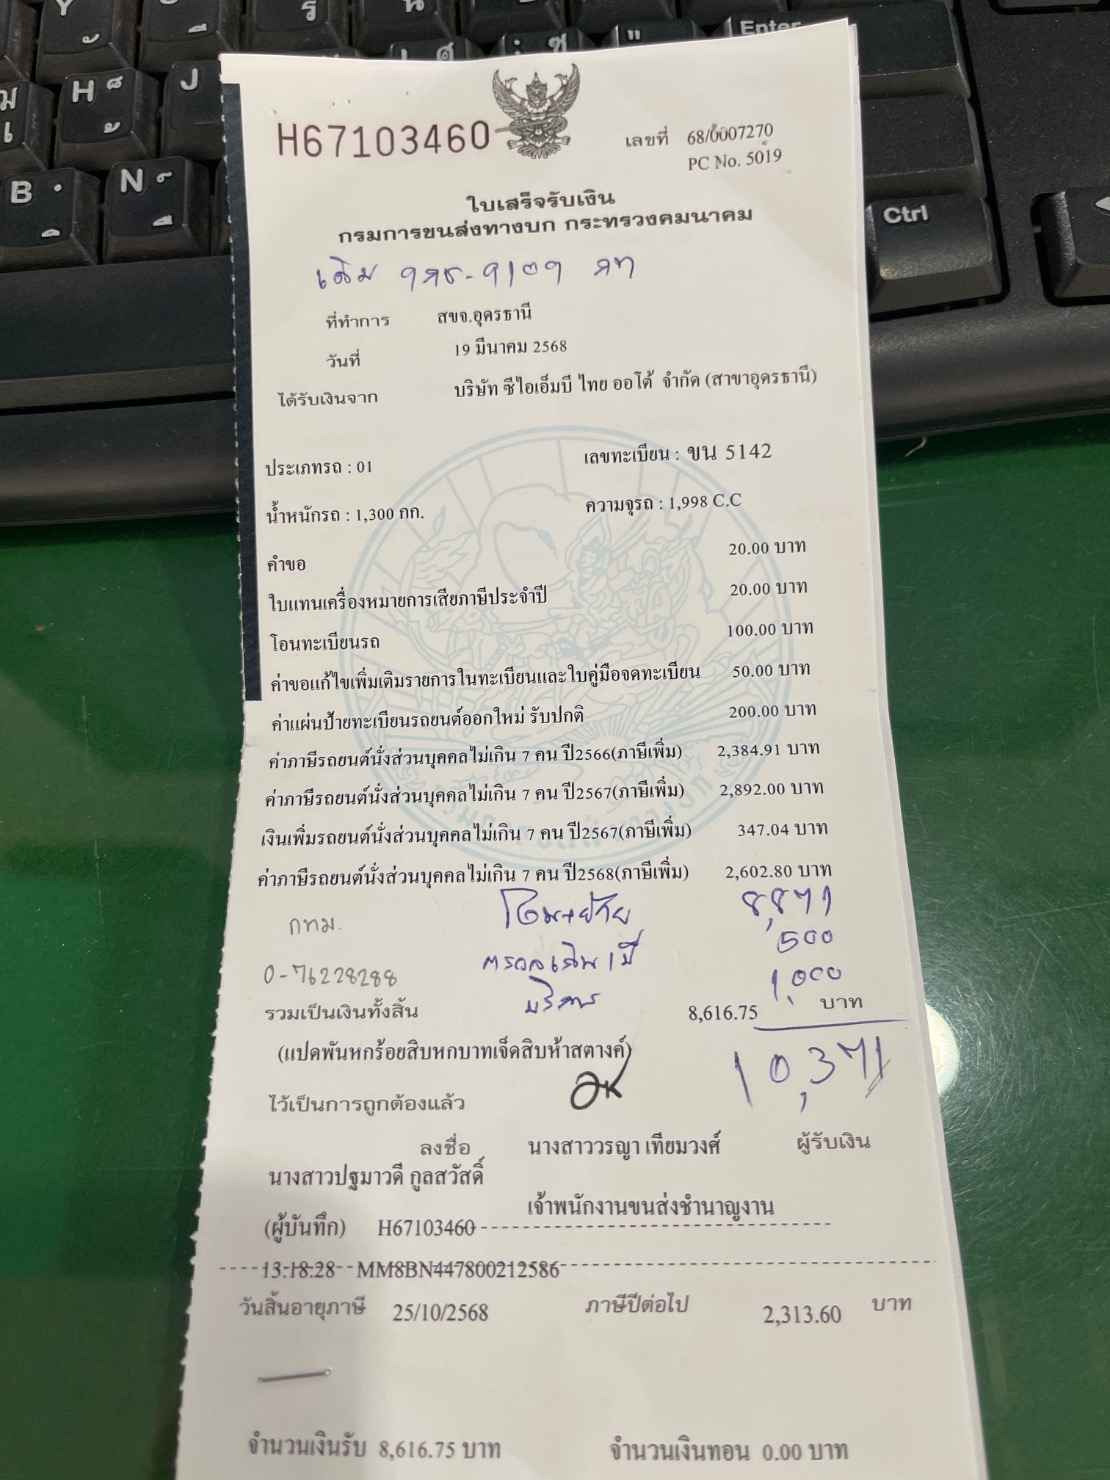 H67103460
เลขที่ 68/0007270
PC No. 5019
ใบเสร็จรับเงิน
กรมการขนส่งทางบก กระทรวงคมนาคม
เดิม
ที่ทำการ สขจ.อุดรธานี
วันที่ 19 มีนาคม 2568
ได้รับเงินจาก บริษัท ซีไอเอ็มบี ไทย ออโต้ จำกัด (สาขาอุดรธานี)
ประเภทรถ : 01 เลขทะเบียน : ขน 5142
น้ำหนักรถ : 1,300 กก. ความจุรถ : 1,998 C.C
คำขอ 20.00 บาท
ใบแทนเครื่องหมายการเสียภาษีประจำปี 20.00 บาท
โอนทะเบียนรถ 100.00 บาท
ค่าขอแก้ไขเพิ่มเติมรายการในทะเบียนและใบคู่มือจดทะเบียน 50.00 บาท
ค่าแผ่นป้ายทะเบียนรถยนต์ออกใหม่ รับปกติ 200.00 บาท
ค่าภาษีรถยนต์นั่งส่วนบุคคลไม่เกิน 7 คน ปี2566(ภาษีเพิ่ม) 2,384.91 บาท
ค่าภาษีรถยนต์นั่งส่วนบุคคลไม่เกิน 7 คน ปี2567(ภาษีเพิ่ม) 2,892.00 บาท
เงินเพิ่มรถยนต์นั่งส่วนบุคคลไม่เกิน 7 คน ปี2567(ภาษีเพิ่ม) 347.04 บาท
ค่าภาษีรถยนต์นั่งส่วนบุคคลไม่เกิน 7 คน ปี2568(ภาษีเพิ่ม) 2,602.80 บาท
กทม. โอน+ย้าย 8,871
500
0-76228288 บริการ 1,000
รวมเป็นเงินทั้งสิ้น 8,616.75 บาท
(แปดพันหกร้อยสิบหกบาทเจ็ดสิบห้าสตางค์) 10,371
ไว้เป็นการถูกต้องแล้ว
ลงชื่อ นางสาววรญา เทียมวงศ์ ผู้รับเงิน
นางสาวปฐมาวดี กูลสวัสดิ์
เจ้าพนักงานขนส่งชำนาญงาน
(ผู้บันทึก) H67103460
13:18:28 MM8BN447800212586
วันสิ้นอายุภาษี 25/10/2568 ภาษีปีต่อไป 2,313.60 บาท
จำนวนเงินรับ 8,616.75 บาท จำนวนเงินทอน 0.00 บาท